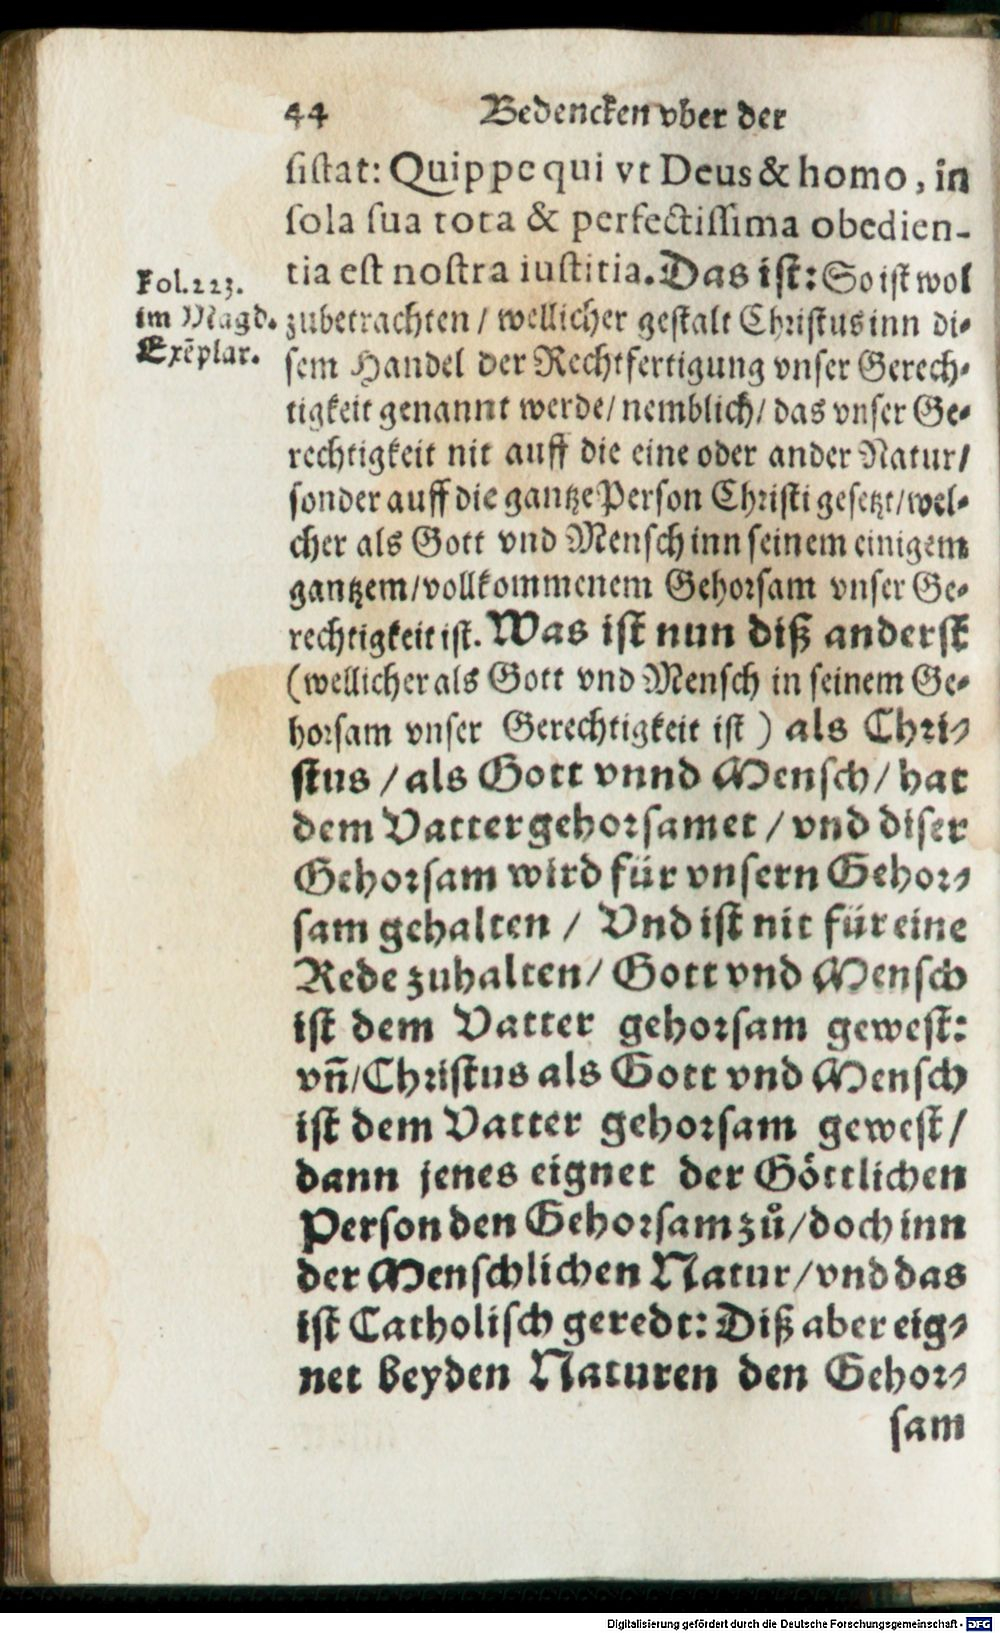 44 Bedencken vber der
sistat: Quippe qui vt Deus & homo, in
sola sua tota & perfectissima obedien-
tia est nostra iustitia. Das ist: So ist wol
Fol. 223.
im Magd.
Exẽplar.
zubetrachten / wellicher gestalt Christus inn di-
sem Handel der Rechtfertigung vnser Gerech-
tigkeit genannt werde / nemblich / das vnser Ge-
rechtigkeit nit auff die eine oder ander Natur /
sonder auff die gantze Person Christi gesetzt / wel-
cher als Gott vnd Mensch inn seinem einigem
gantzem / vollkommenem Gehorsam vnser Ge-
rechtigkeit ist. Was ist nun diß anderst
(wellicher als Gott vnd Mensch in seinem Ge-
horsam vnser Gerechtigkeit ist ) als Chri-
stus / als Gott vnnd Mensch / hat
dem Vatter gehorsamet / vnd diser
Gehorsam wird für vnsern Gehor-
sam gehalten / Vnd ist nit für eine
Rede zuhalten / Gott vnd Mensch
ist dem Vatter gehorsam gewest:
vñ / Christus als Gott vnd Mensch
ist dem Vatter gehorsam gewest /
dann jenes eignet der Göttlichen
Person den Gehorsam zů / doch inn
der Menschlichen Natur / vnd das
ist Catholisch geredt: Diß aber eig-
net beyden Naturen den Gehor-
sam
Digitalisierung gefördert durch die Deutsche Forschungsgemeinschaft - DFG